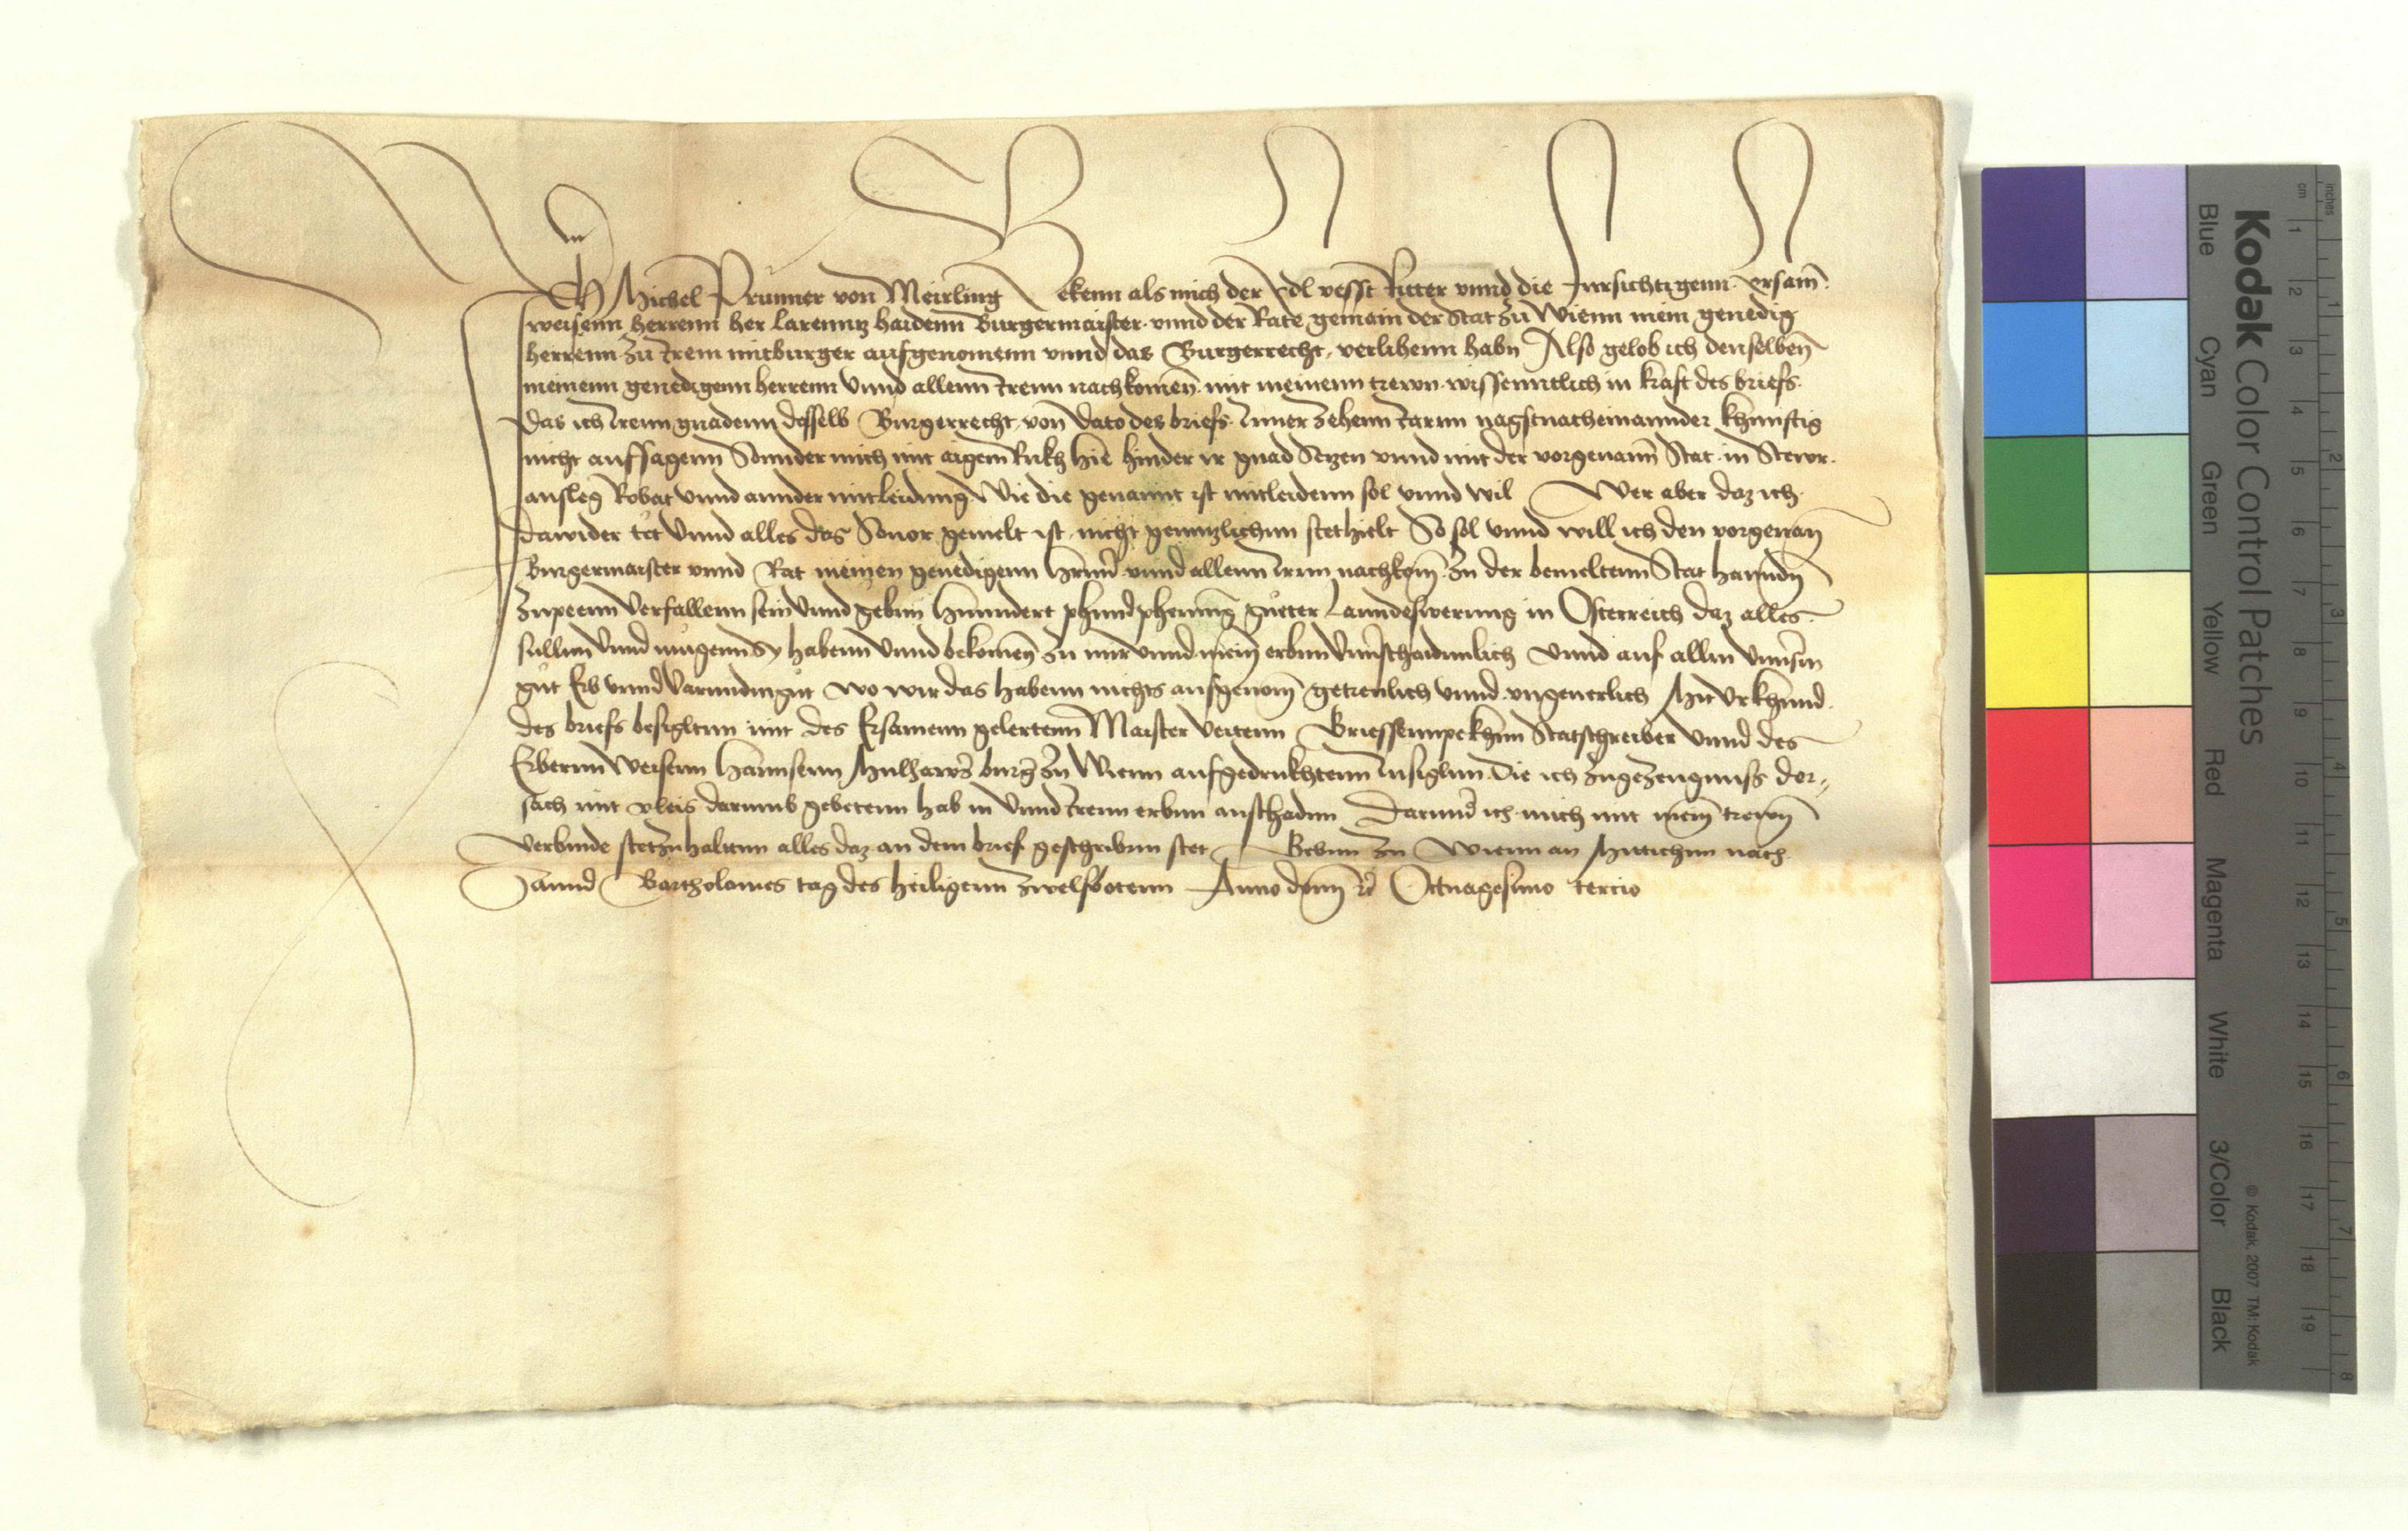 Ich Michel Prunner von Meirling Bekenn als mich der Edl vesst Ritter vnnd die Fursichtigenn ersam̄
weisenn herrenn her Larenntz haidenn Burgermaister vnnd der Rate gemain der Stat zu Wienn mein genedig
herrenn zu Irem mitburger aufgenomenn vnnd das Burgerrecht verlihenn habn Also gelob ich denselben̄
meinenn genedigenn herrenn Vnnd allenn Irenn nachkomen̄ mit meinenn trewn wissenntlich in kraft des briefs
Das ich Irenn gnadenn desselb Burgerrecht von dato des briefs Inner zehenn Iarnn nagstnacheinannder khunftig
nicht aufsagenn Sonnder mich mit aigem̄ Rukh hie hinder ir gnad Setzen vnnd mit der vorgenann̄ Stat in Stewr
ansleg Robat Vnnd annder mitleidung Wie die genannt ist mitleidenn sol vnnd wil Wer aber daz ich
dawider tet Vnnd alles das Souor gemelt ist nicht genntzlichnn stet hielt So sol vnnd will ich den vorgenan̄
Burgermaister vnnd Rat meinen genedigenn hern̄ vnnd allenn Irnn nachkom̄ zu der bemeltenn Stat hannndn̄
zu peenn Verfallenn sein Vnnd gebnn hunndert phund phening gueter Lanndeswerung in Osterreich daz alles
sullnn Vnnd mugenn Sy habenn Vnnd bekomen̄ zu mir vnnd mein̄ erbnn Vnuerschaidennlich Vnnd auf allen Vnnsern
gut Erb vnnd Varunndmgut wo wir das habenn nichts ausgenom̄ getreulich vnnd vngeuerlich Mit Vrkhund
des briefs besigltnn mit des Ersamenn gelertenn Maister Veitenn Griessennpekhnn Statschreiber Vnnd des
Erbernn Weisenn Hannsenn Mulhaws̄ burḡ zu Wienn aufgedrukhtenn Insiglnn Die ich zu gezeugnuss der
sach mit vleis darumb gebetenn hab in Vnnd Irenn erbnn anschadnn Darunnd̄ ich mich mit mein̄ trewn̄
Verbinde stet zu haltnn alles daz an dem brief geschribnn stet Gebnn zu Wienn an Mittichnn nach
Sannd Bartholomes tag des heiligenn zwelfbotenn Anno dom̄ ꝛc̄ Octuagesimo tercio
Kodak Color Control Patches
Blue Cyan Green Yellow Red Magenta White 3/Color Black
© Kodak, 2007 TM: Kodak
cm 1 2 3 4 5 6 7 8 9 10 11 12 13 14 15 16 17 18 19
inches 1 2 3 4 5 6 7 8